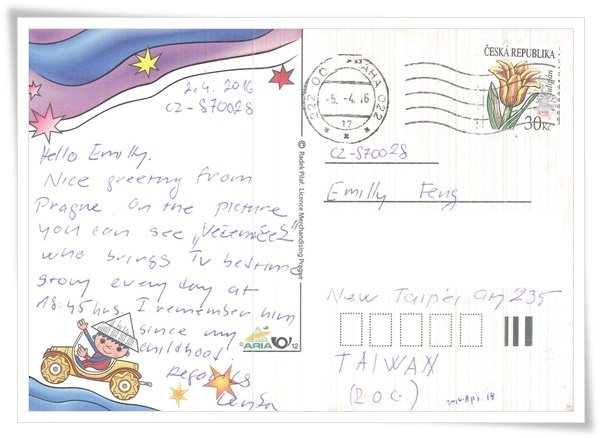 2.4. 2016
CZ-870028
Hello Emilly.
Nice greeting from
Prague. On the picture
you can see „Večerníček"
who brings TV bedtime
story every day at
18:45 hrs. I remember him
since my
childhood.
Regards
Lenka
© Radek Pilař. Licence Merchandising Prague
ARIA
12
222 00
PRAHA 022
-5.-4.16
17
ČESKÁ REPUBLIKA
Tulipán
30 Kč
CZ-870028
Emilly Feng
New Taipei City 235
TAIWAN
(ROC)
2016 Apr. 18